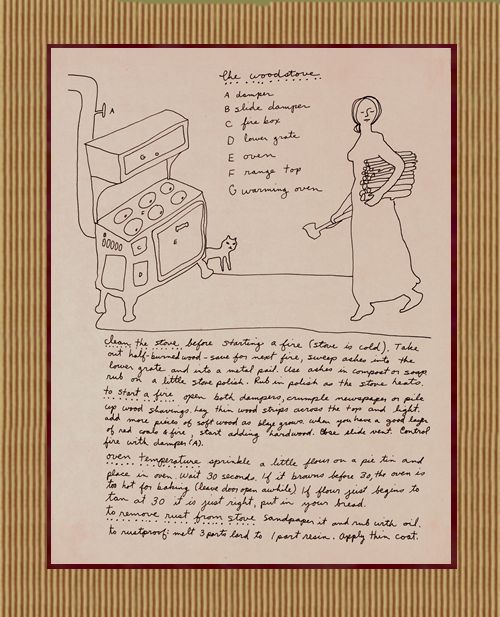 the woodstove
A damper
B slide damper
C fire box
D lower grate
E oven
F range top
G warming oven
A
G
F
B
C
D
E
clean the stove before starting a fire (stove is cold). Take
out half-burned wood - save for next fire, sweep ashes into the
lower grate and into a metal pail. Use ashes in compost or soap
rub on a little stove polish. Rub in polish as the stove heats.
to start a fire open both dampers, crumple newspaper or pile
up wood shavings. lay thin wood strips across the top and light.
add more pieces of soft wood as blaze grows. when you have a good layer
of red coals & fire, start adding hardwood. Close slide vent. Control
fire with damper (A).
oven temperature sprinkle a little flour on a pie tin and
place in oven. Wait 30 seconds. If it browns before 30, the oven is
too hot for baking (leave door open awhile) If flour just begins to
tan at 30 it is just right, put in your bread.
to remove rust from stove sandpaper it and rub with oil.
to rustproof: melt 3 parts lard to 1 part resin. Apply thin coat.